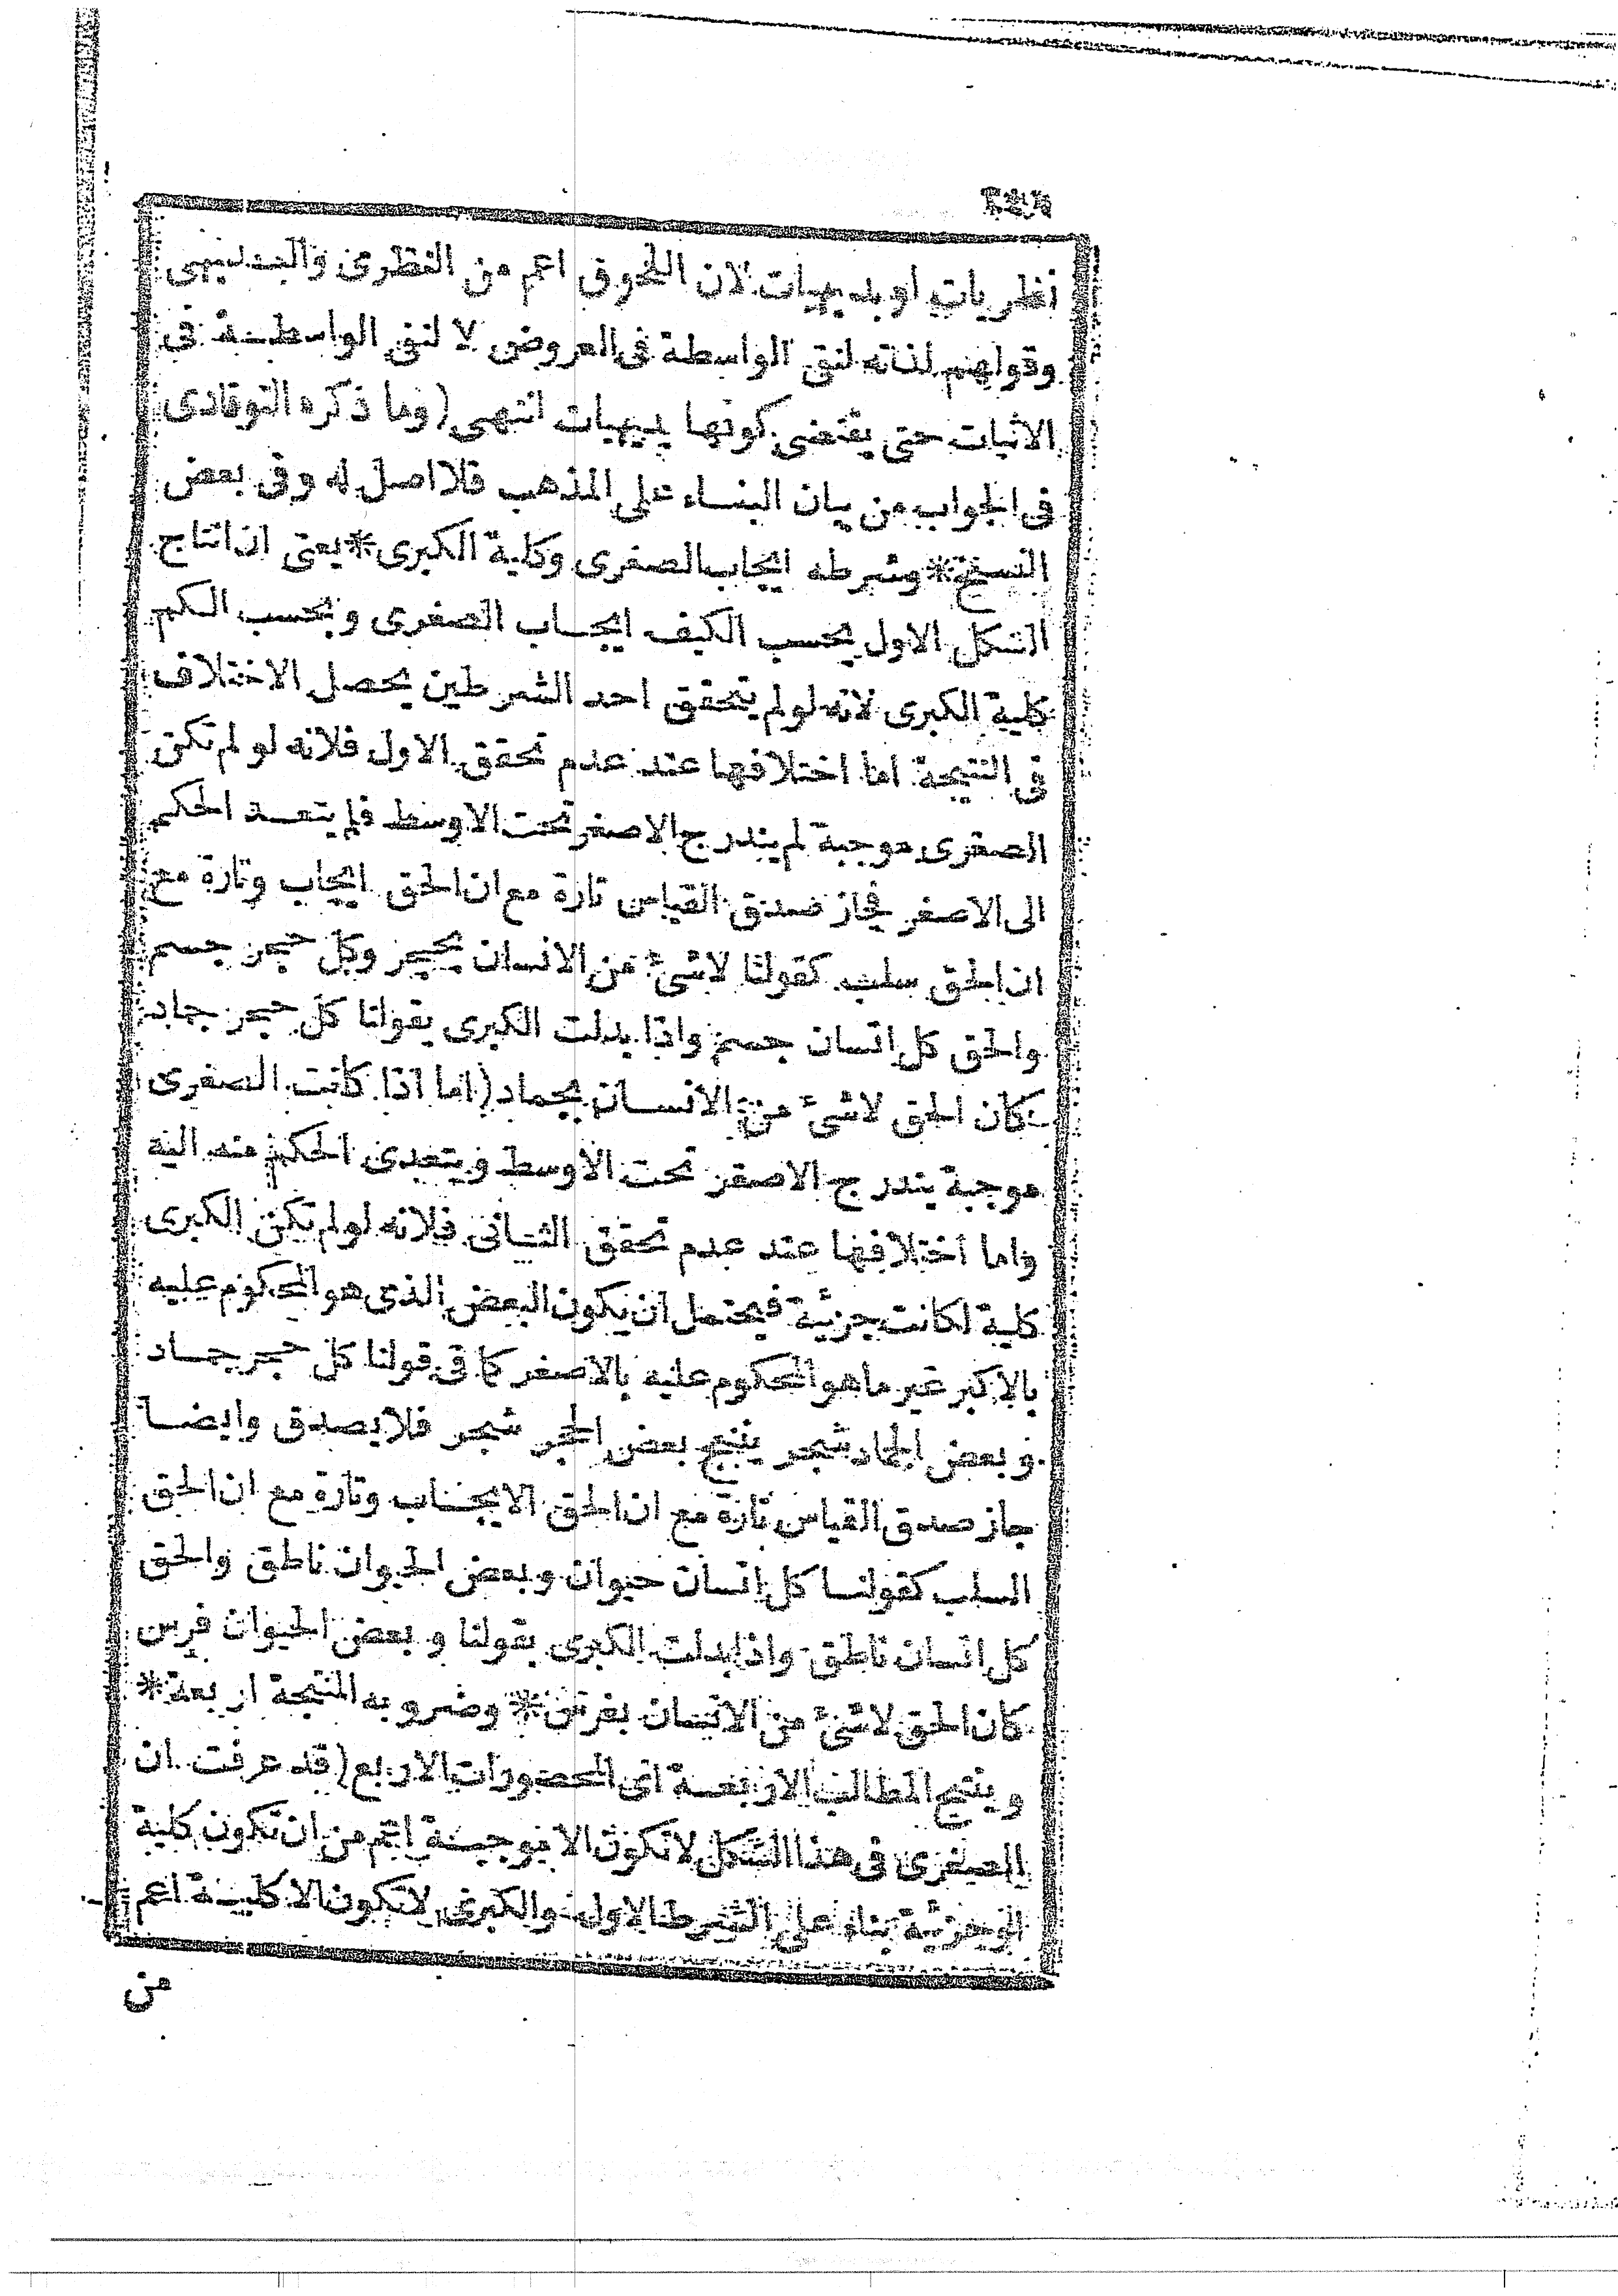 نظريات او بديهيات لان اللحوق اعم من النظرى والبديهى
وقولهم لذاته لنفى الواسطة فى العروض لا لنفى الواسطة فى
الاثبات حتى يقتضى كونها بديهيات انتهى (وما ذكره التوقادى
فى الجواب من بيان البناء على المذهب فلا اصل له وفى بعض
النسخ * وشرطه ايجاب الصغرى وكلية الكبرى * يعنى ان انتاج
الشكل الاول بحسب الكيف ايجاب الصغرى وبحسب الكم
كلية الكبرى لانه لو لم يتحقق احد الشرطين يحصل الاختلاف
فى النتيجة اما اختلافها عند عدم تحقق الاول فلانه لو لم تكن
الصغرى موجبة لم يندرج الاصغر تحت الاوسط فلم يتعد الحكم
الى الاصغر فجاز صدق القياس تارة مع ان الحق ايجاب وتارة مع
ان الحق سلب كقولنا لاشئ من الانسان بحجر وكل حجر جسم
والحق كل انسان جسم واذا بدلت الكبرى بقولنا كل حجر جماد
كان الحق لاشئ من الانسان بجماد (اما اذا كانت الصغرى
موجبة يندرج الاصغر تحت الاوسط ويتعدى الحكم منه اليه
واما اختلافها عند عدم تحقق الثانى فلانه لو لم تكن الكبرى
كلية لكانت جزئية فيحتمل ان يكون البعض الذى هو المحكوم عليه
بالاكبر غير ما هو المحكوم عليه بالاصغر كما فى قولنا كل حجر جماد
وبعض الجماد شجر ينتج بعض الحجر شجر فلا يصدق وايضا
جاز صدق القياس تارة مع ان الحق الايجاب وتارة مع ان الحق
السلب كقولنا كل انسان حيوان وبعض الحيوان ناطق والحق
كل انسان ناطق واذا بدلت الكبرى بقولنا وبعض الحيوان فرس
كان الحق لاشئ من الانسان بفرس * وضروبه المنتجة اربعة *
وينتج المطالب الاربعة اى المحصورات الاربع (قد عرفت ان
الصغرى فى هذا الشكل لا تكون الا موجبة اعم من ان تكون كلية
او جزئية بناء على الشرط الاول والكبرى لا تكون الا كلية اعم
من